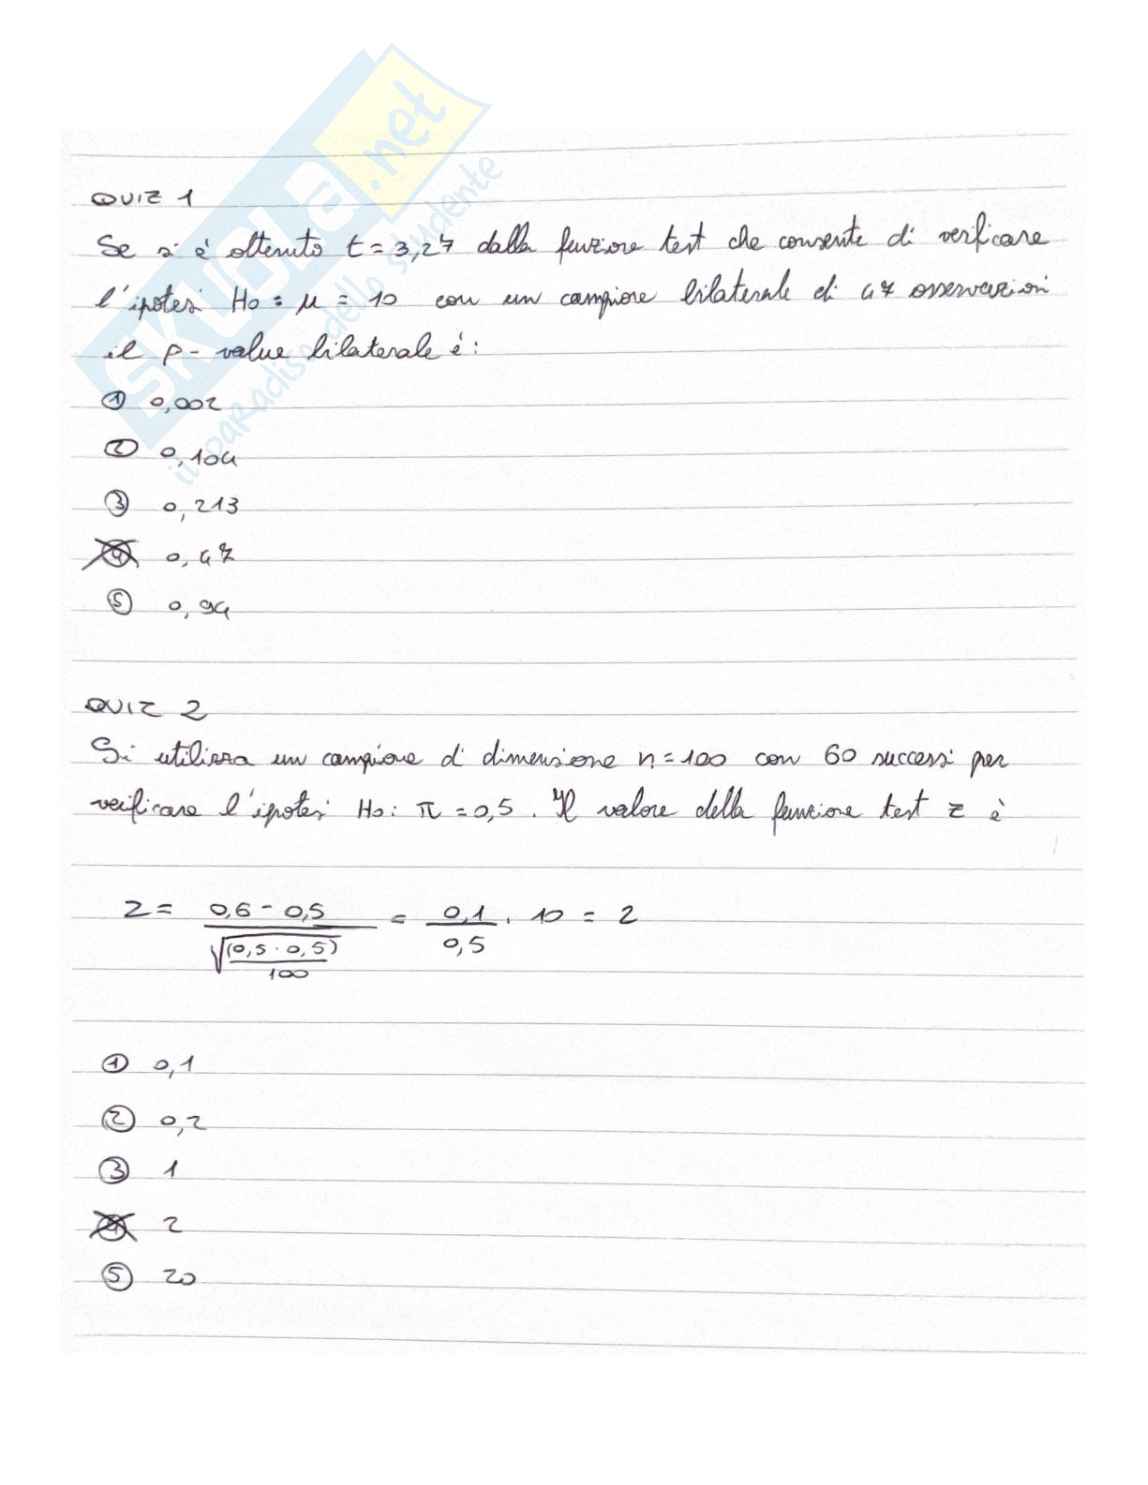 SKUOLA.net
il paradiso dello studente
QUIZ 1
Se si è ottenuto t = 3,27 dalla funzione test che consente di verificare
l'ipotesi H0 : μ = 10 con un campione bilaterale di 47 osservazioni
il p-value bilaterale è:
① 0,002
② 0,104
③ 0,213
④ 0,47
⑤ 0,94
QUIZ 2
Si utilizza un campione di dimensione n=100 con 60 successi per
verificare l'ipotesi H0: π = 0,5. Il valore della funzione test z è
z = (0,6 - 0,5) / √((0,5 · 0,5)/100) = 0,1/0,5 · 10 = 2
① 0,1
② 0,2
③ 1
④ 2
⑤ 20